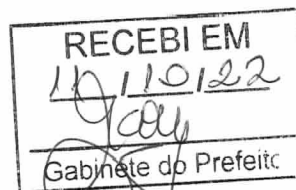 RECEBI EM
11/10/22
Gabinete do Prefeito